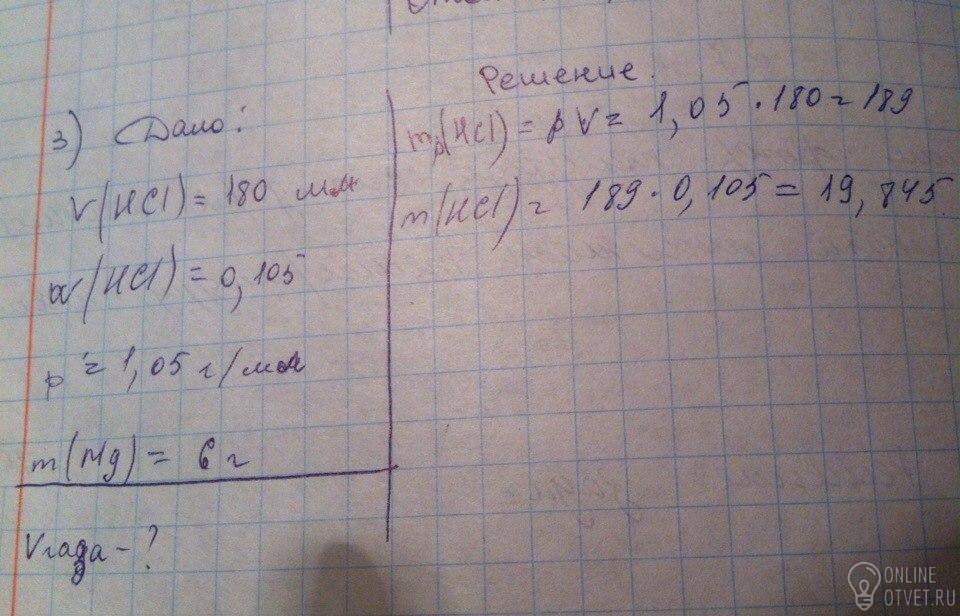 Решение.
3) Дано:
V(HCl) = 180 мл
w(HCl) = 0,105
ρ = 1,05 г/мл
m(Mg) = 6 г
Vгаза - ?
mр(HCl) = ρV = 1,05·180 = 189
m(HCl) = 189·0,105 = 19,845
ONLINE
OTVET.RU